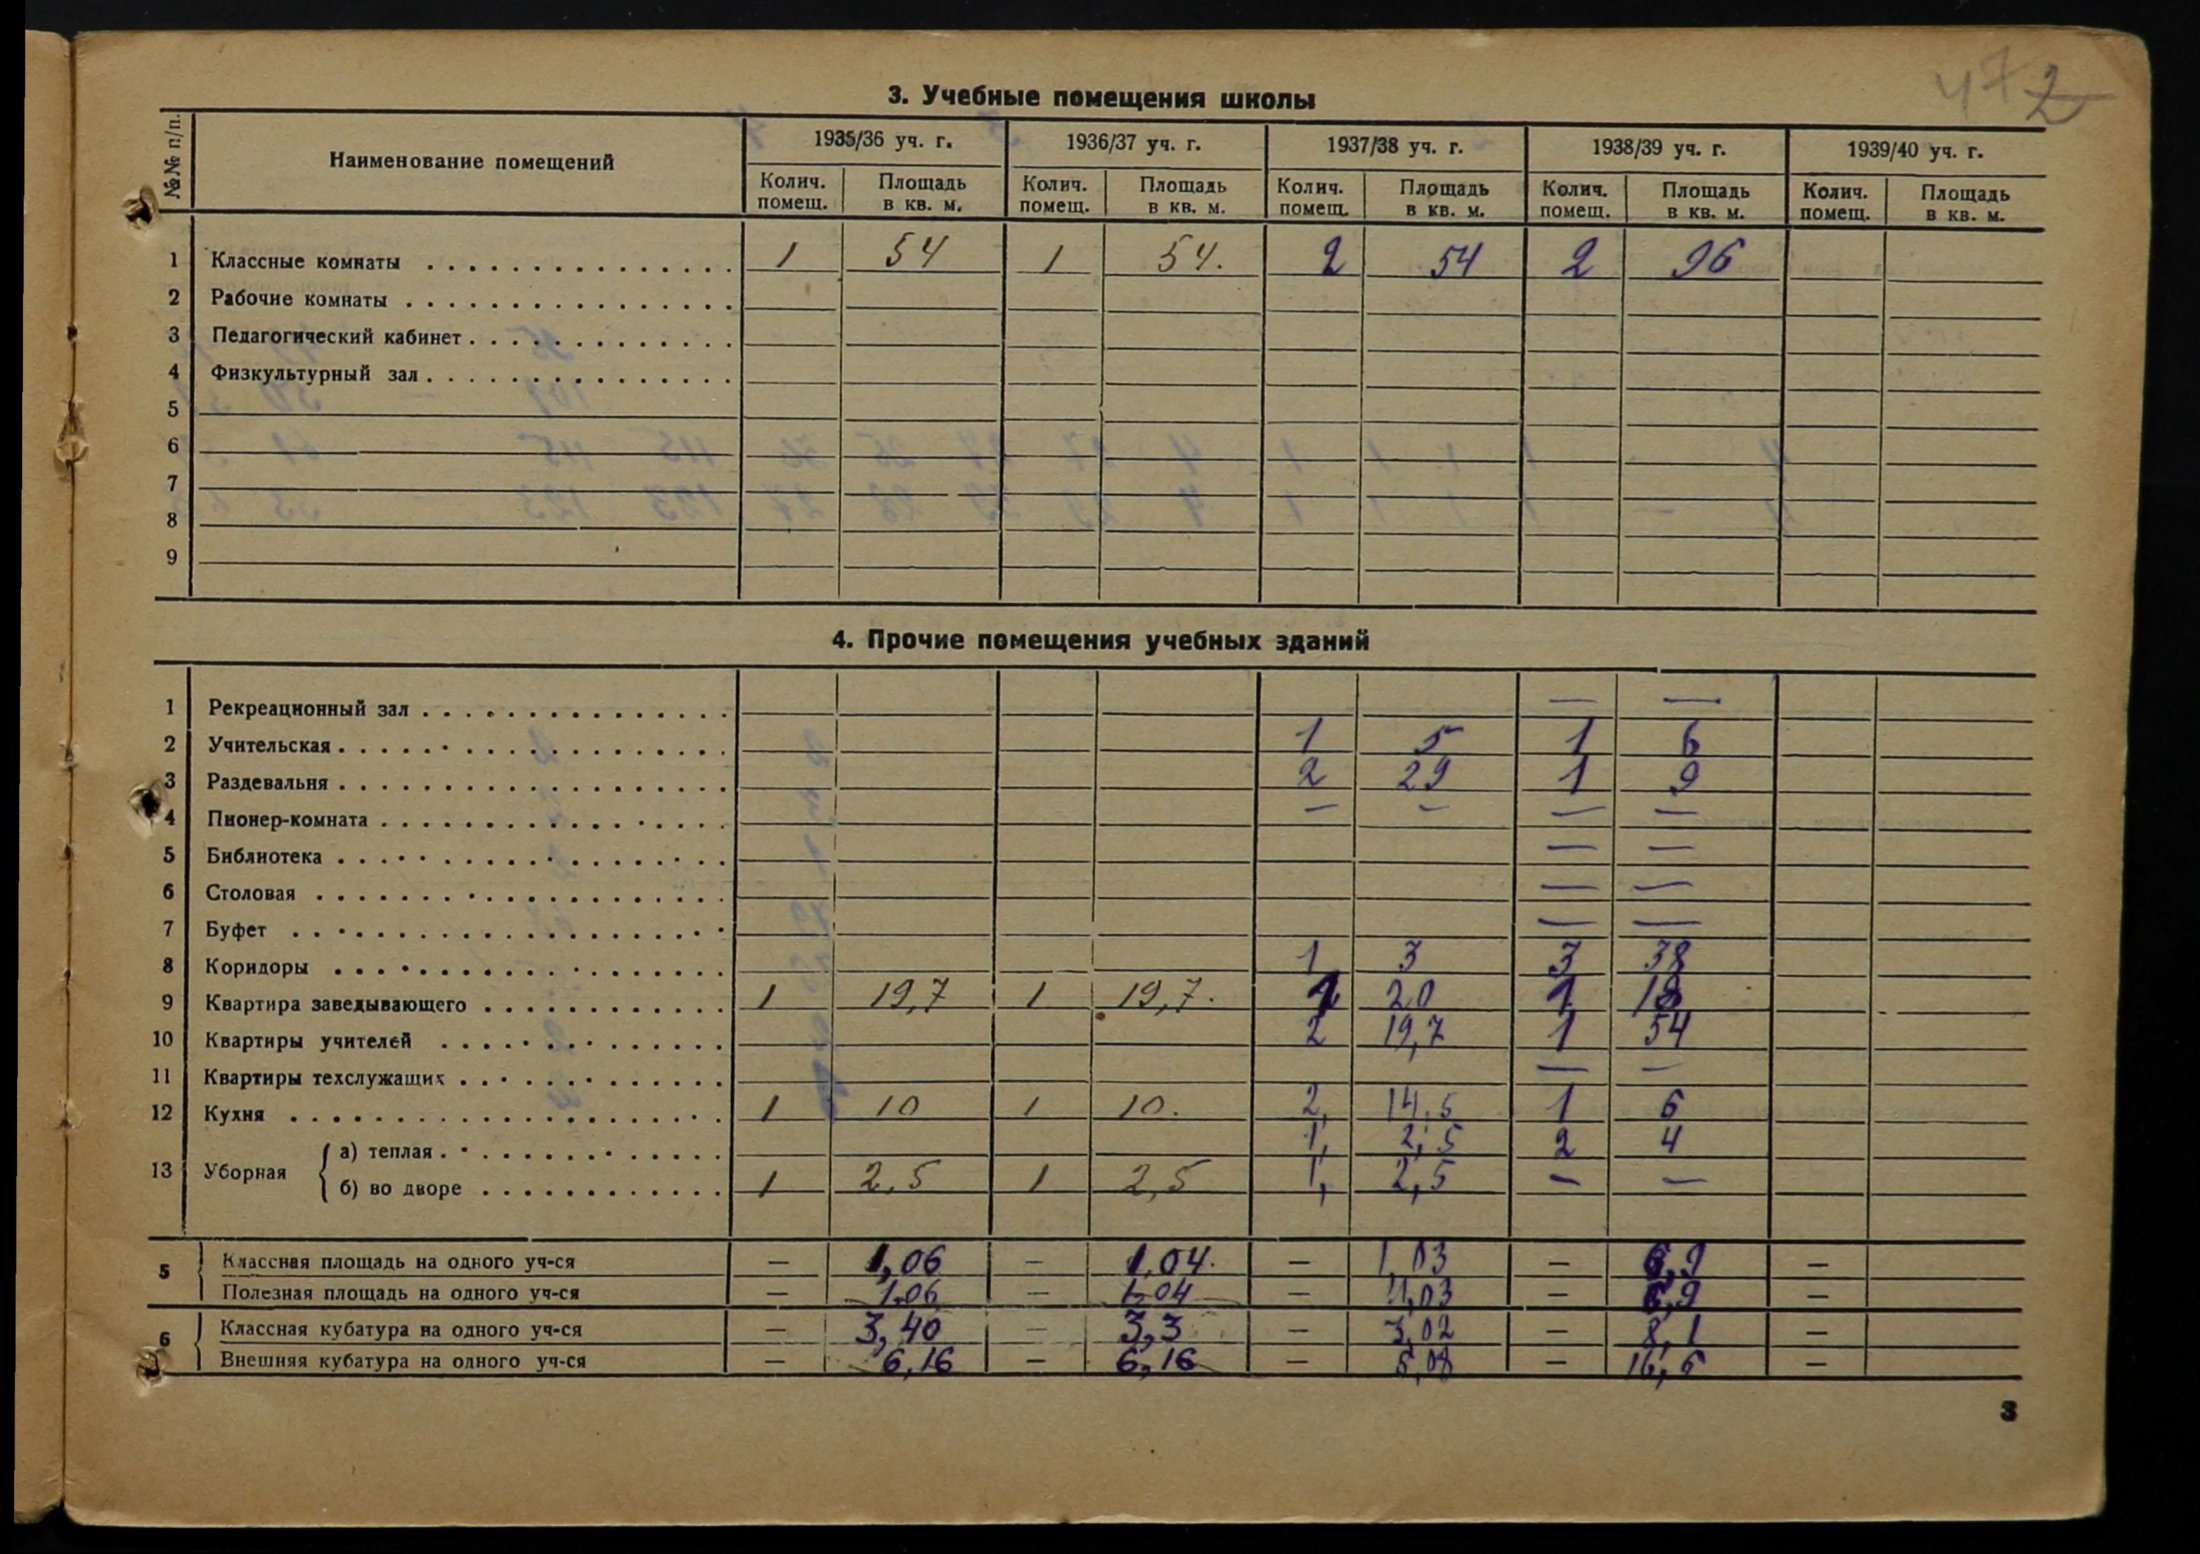 47 2
3. Учебные помещения школы
№№ п/п. Наименование помещений 1935/36 уч. г. 1936/37 уч. г. 1937/38 уч. г. 1938/39 уч. г. 1939/40 уч. г.
Колич. помещ. Площадь в кв. м. Колич. помещ. Площадь в кв. м. Колич. помещ. Площадь в кв. м. Колич. помещ. Площадь в кв. м. Колич. помещ. Площадь в кв. м.
1 Классные комнаты 1 54 1 54. 2 54 2 96
2 Рабочие комнаты
3 Педагогический кабинет
4 Физкультурный зал
5
6
7
8
9
4. Прочие помещения учебных зданий
1 Рекреационный зал — —
2 Учительская 1 5 1 6
3 Раздевальня 2 29 1 9
4 Пионер-комната — — — —
5 Библиотека — —
6 Столовая — —
7 Буфет — —
8 Коридоры 1 3 3 38
9 Квартира заведывающего 1 19,7 1 19,7. 1 20 1 18
10 Квартиры учителей 2 19,7 1 54
11 Квартиры техслужащих — —
12 Кухня 1 10 1 10. 2, 14,5 1 6
13 Уборная а) теплая 1, 2,5 2 4
б) во дворе 1 2,5 1 2,5 1, 2,5 — —
5 Классная площадь на одного уч-ся — 1,06 — 1,04. — 1,03 — 6,9 —
Полезная площадь на одного уч-ся — 1,06 — 1,04 — 1,03 — 6,9 —
6 Классная кубатура на одного уч-ся — 3,40 — 3,3 — 3,02 — 8,1 —
Внешняя кубатура на одного уч-ся — 6,16 — 6,16 — 5,08 — 16,6 —
3